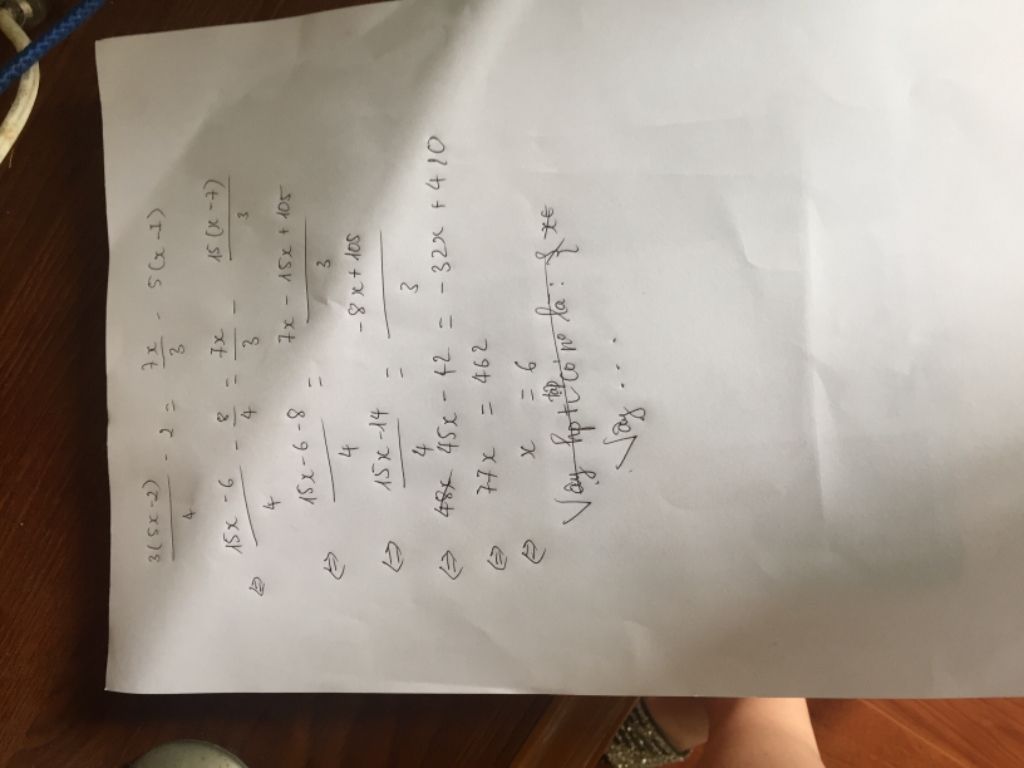 3(5x-2)/4 - 2 = 7x/3 - 5(x-7)
⇔ 15x-6/4 - 8/4 = 7x/3 - 15(x-7)/3
⇔ 15x-6-8/4 = 7x-15x+105/3
⇔ 15x-14/4 = -8x+105/3
⇔ 48x 45x - 42 = -32x + 420
⇔ 77x = 462
⇔ x = 6
Vậy hpt có no là: { x∈
Vậy ...